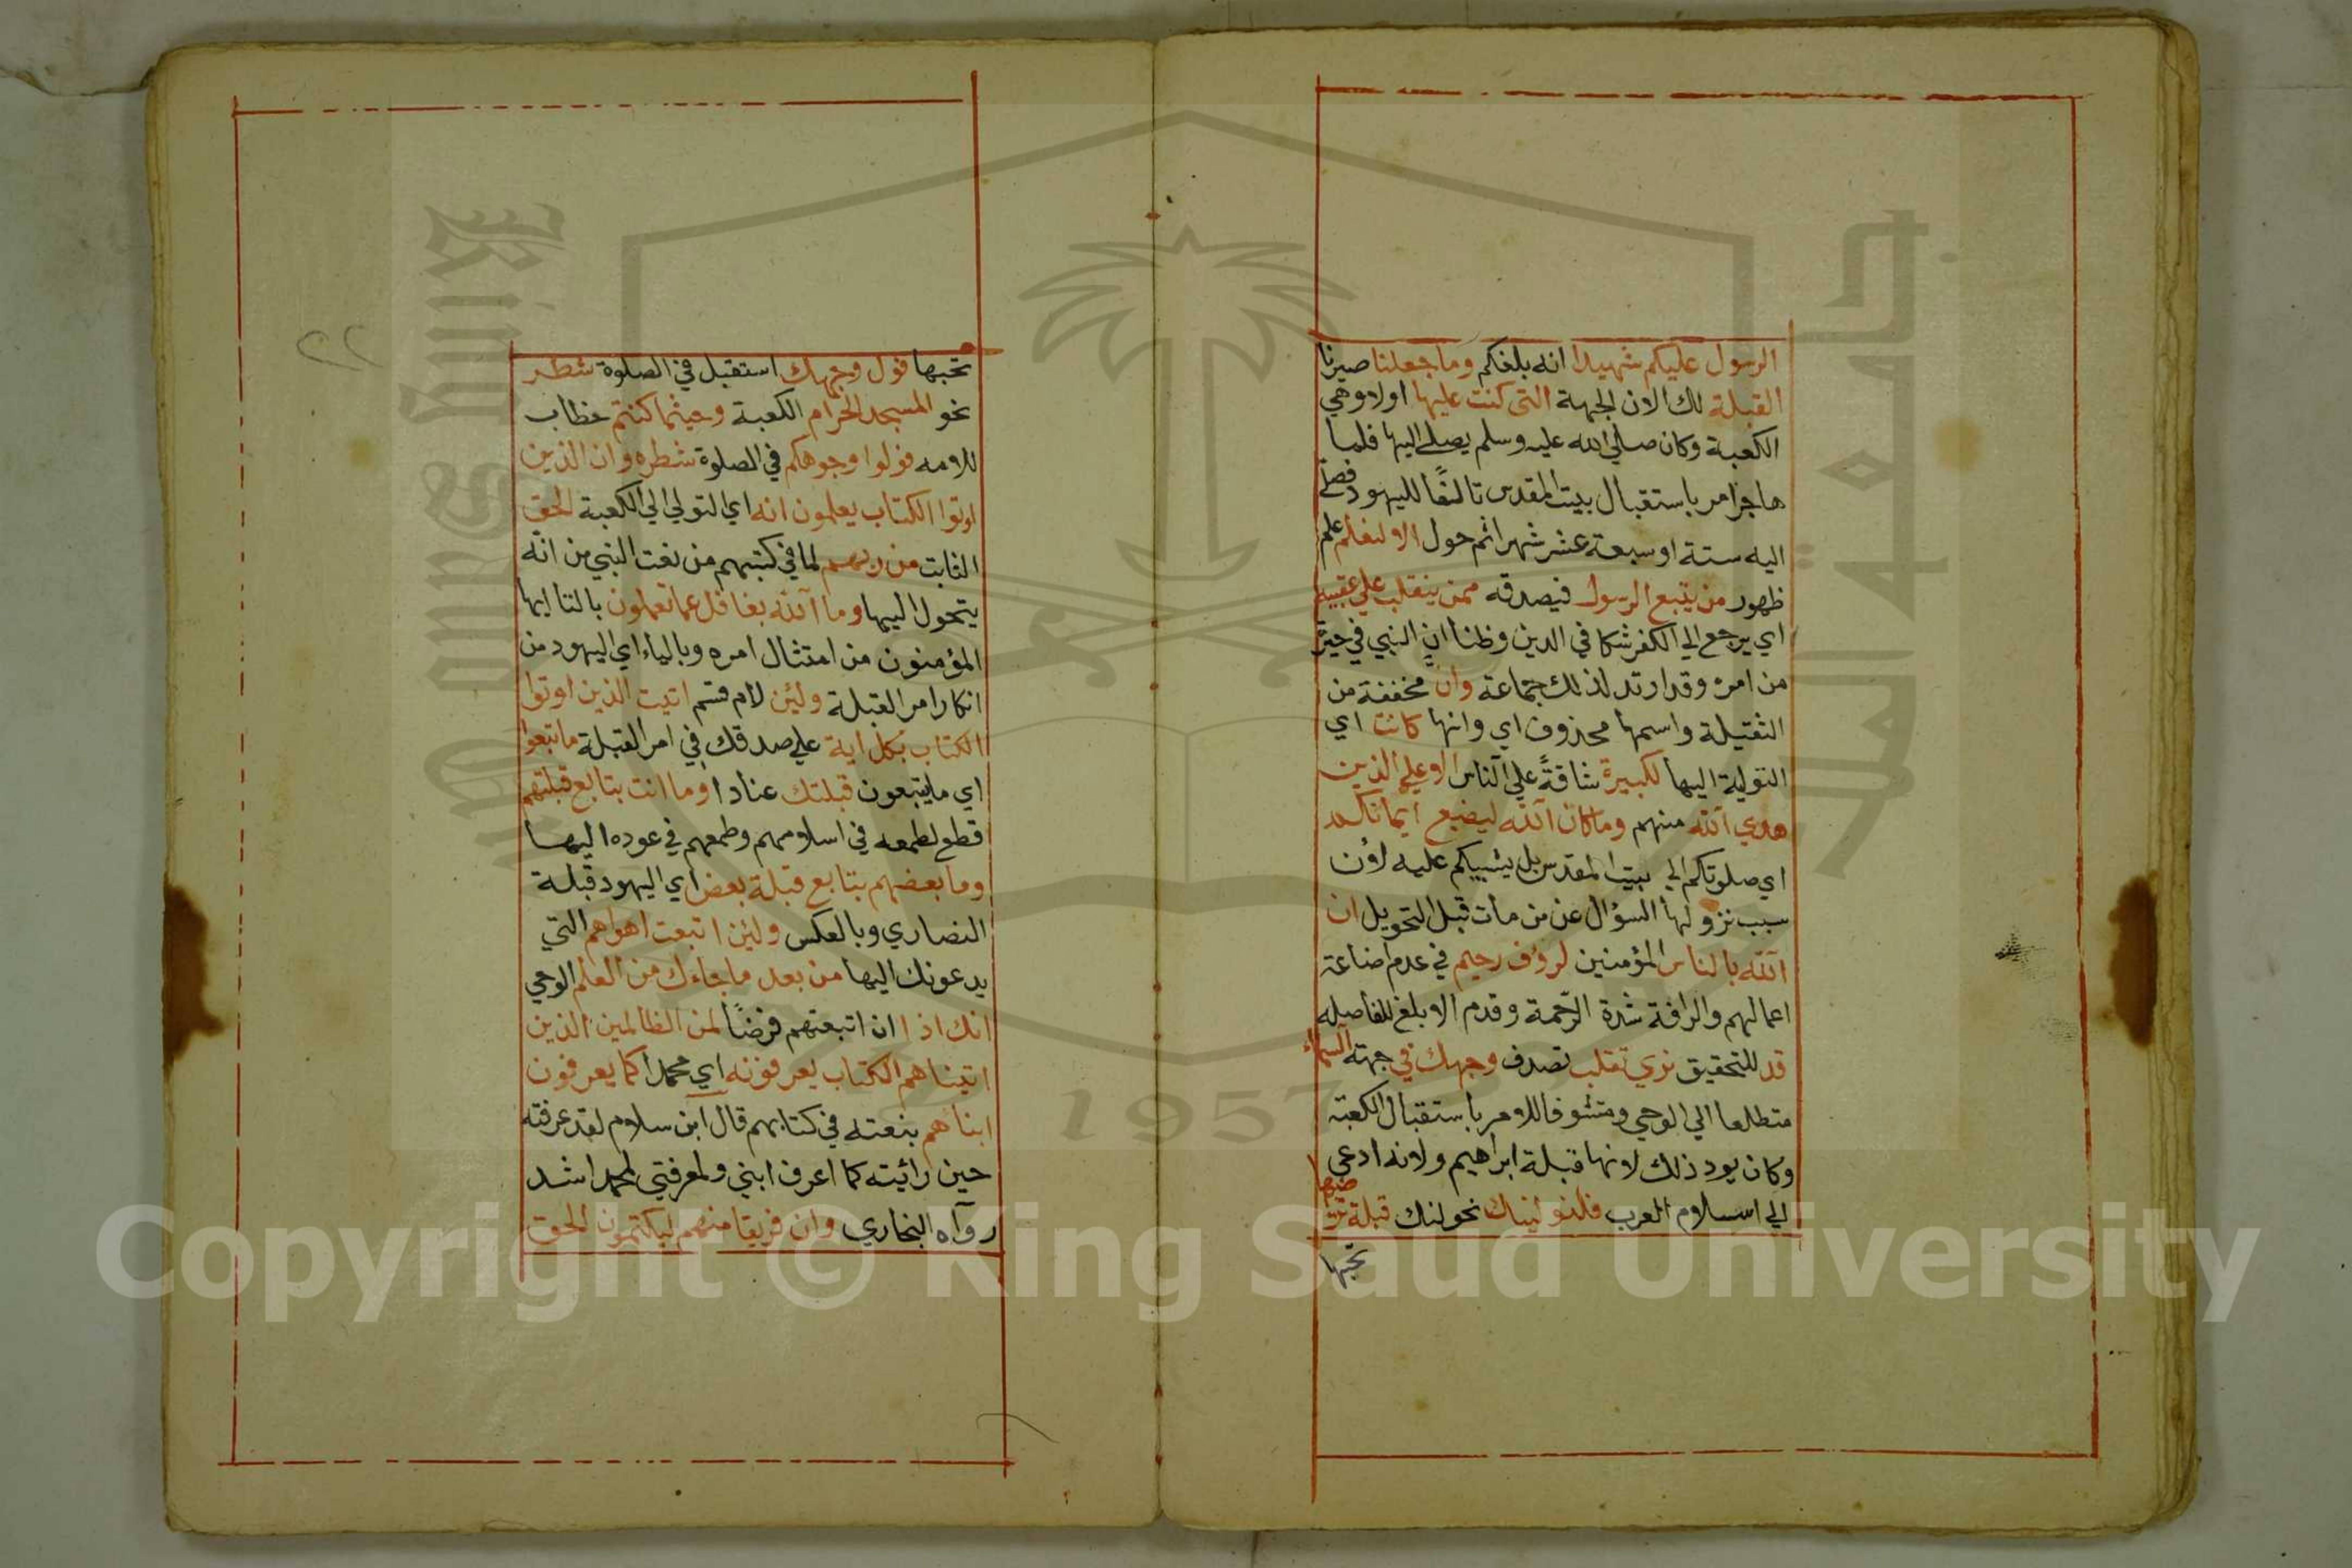 الرسول عليكم شهيدا انه بلغكم وما جعلنا صيرنا
القبلة لك الان الجهة التي كنت عليها اولا وهي
الكعبة وكان صلي الله عليه وسلم يصلي اليها فلما
هاجر امر باستقبال بيت المقدس تالفًا لليهود فصلي
اليه ستة او سبعة عشر شهرا ثم حول الا لنعلم علم
ظهور من يتبع الرسول فيصدقه ممن ينقلب علي عقبيه
اي يرجع الي الكفر شكا في الدين وظنا ان النبي في حيرة
من امره وقد ارتد لذلك جماعة وان مخففة من
الثقيلة واسمها محذوف اي وانها كانت اي
التولية اليها لكبيرة شاقةً علي الناس الا علي الذين
هدي الله منهم وما كان الله ليضيع ايمانكم
اي صلوتكم الي بيت المقدس بل يثيبكم عليه لان
سبب نزولها السؤال عن من مات قبل التحويل ان
الله بالناس المؤمنين لرؤف رحيم في عدم اضاعة
اعمالهم والرافة شدة الرحمة وقدم الابلغ للفاصلة
قد للتحقيق نري تقلب تصرف وجهك في جهة السماء
متطلعا الي الوحي ومتشوفا للامر باستقبال الكعبة
وكان يود ذلك لانها قبلة ابراهيم ولانه ادعي
الي اسلام العرب فلنولينك نحولنك قبلة ترضيها
تحبها
٢٢
تحبها فول وجهك استقبل في الصلوة شطر
نحو المسجد الحرام الكعبة وحيثما كنتم خطاب
للامه فولوا وجوهكم في الصلوة شطره وان الذين
اوتوا الكتاب يعلمون انه اي التولي الي الكعبة الحق
الثابت من ربهم لما في كتبهم من نعت النبي من انه
يتحول اليها وما الله بغافل عما تعملون بالتا ايها
المؤمنون من امتثال امره وبالياء اي اليهود من
انكار امر القبلة ولئن لام قسم اتيت الذين اوتوا
الكتاب بكل اية علي صدقك في امر القبلة ما تبعوا
اي ما يتبعون قبلتك عنادا وما انت بتابع قبلتهم
قطع لطمعه في اسلامهم وطمعهم في عوده اليها
وما بعضهم بتابع قبلة بعض اي اليهود قبلة
النصاري وبالعكس ولئن اتبعت اهواهم التي
يدعونك اليها من بعد ما جاءك من العلم الوحي
انك اذا ان اتبعتهم فرضًا لمن الظالمين الذين
اتيناهم الكتاب يعرفونه اي محمدا كما يعرفون
ابناهم بنعته في كتابهم قال ابن سلام لقد عرفته
حين رائيته كما اعرف ابني ولمعرفتي لمحمد اشد
رواه البخاري وان فريقا منهم ليكتمون الحق
1957
Copyright © King Saud University